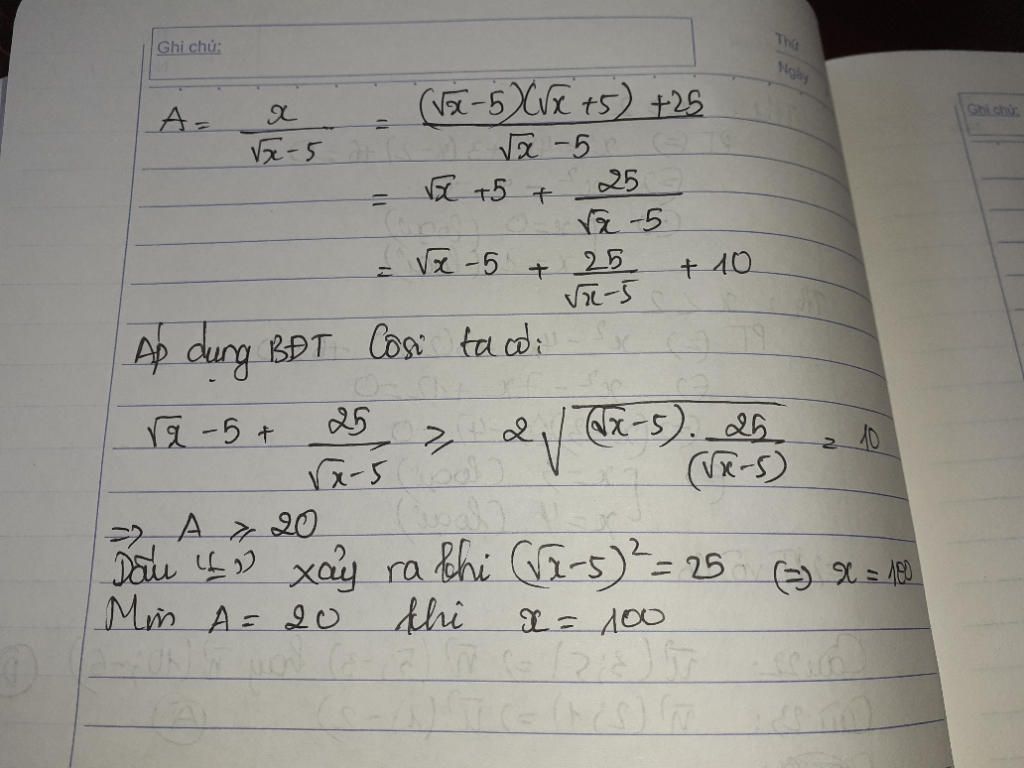 Ghi chú:
Thứ
Ngày
Ghi chú:
A = x/(√x - 5) = ((√x - 5)(√x + 5) + 25)/(√x - 5)
= √x + 5 + 25/(√x - 5)
= √x - 5 + 25/(√x - 5) + 10
Áp dụng BĐT Cosi ta có:
√x - 5 + 25/(√x - 5) ⩾ 2√((√x - 5) . 25/(√x - 5)) = 10
=> A ⩾ 20
Dấu "=" xảy ra khi (√x - 5)² = 25 (=) x = 100
Min A = 20 khi x = 100